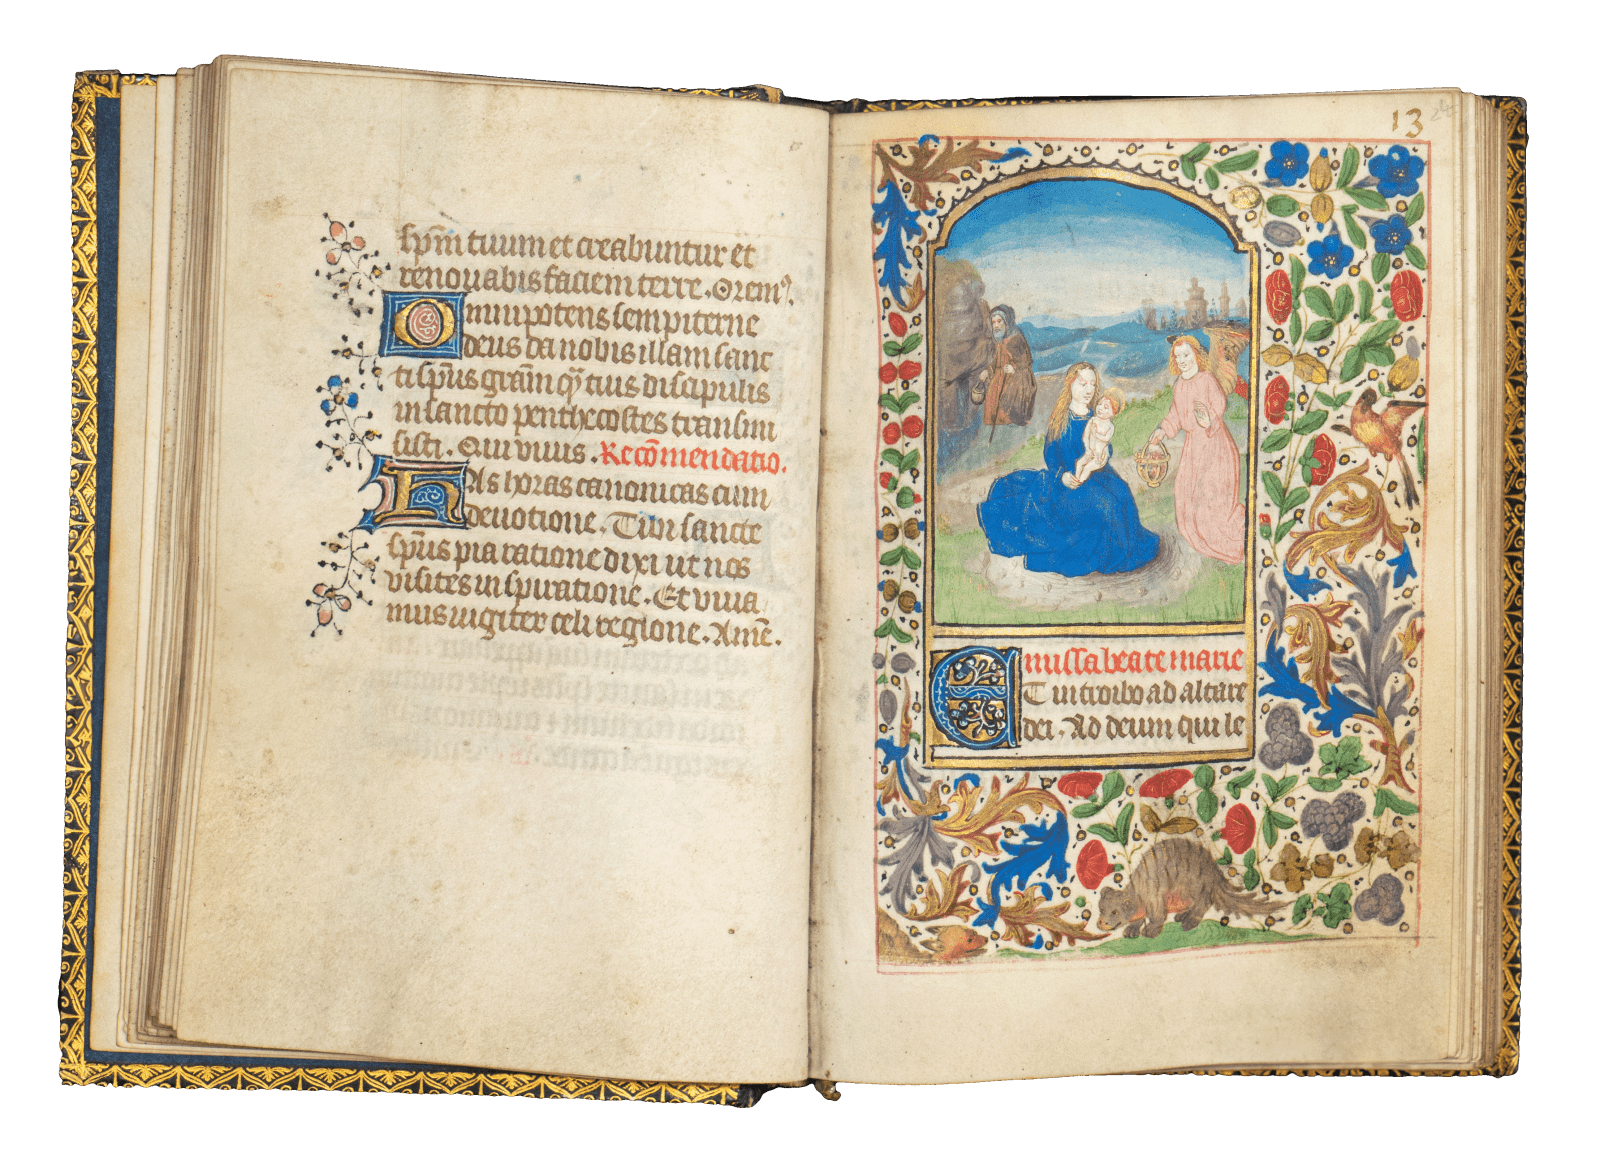 sp̄m tuum et creabuntur et
renouabis faciem terre. Orem⁹.
Omnipotens sempiterne
deus da nobis illam sanc
ti sp̄us grām qͣ tuis discipulis
in sancto penthecostes transmi
sisti. Qui viuis. Recōmendatio.
Has horas canonicas cum
deuotione. Tibi sancte
sp̄us pia ratione dixi ut nos
visites inspiratione. Et viua
mus iugiter celi regione. Amē.
13
missa beate marie
Et introibo ad altare
dei. Ad deum qui le